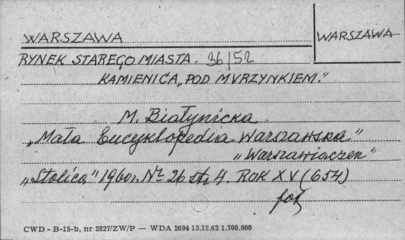 WARSZAWA
WARSZAWA
RYNEK STAREGO MIASTA. 36/52
KAMIENICA „POD MURZYNKIEM."
M. Białynicka
„Mała Encyklopedia Warszawska"
„Warszawiaczek"
„Stolica" 1960r. Nr 26 str 4. ROK XV (654)
fot
CWD - B-15-b, nr 2827/ZW/P — WDA 2694 13.12.62 1.700.000